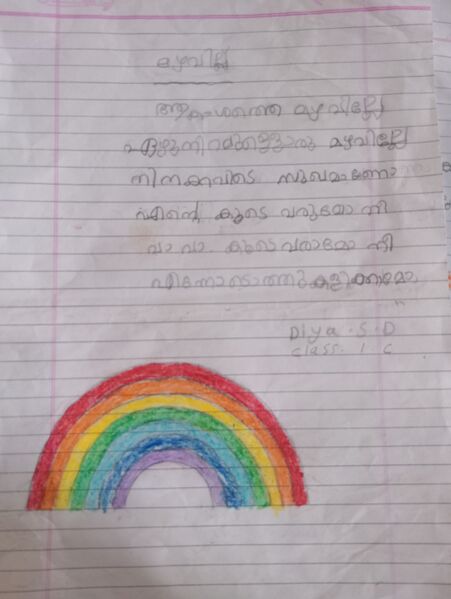 മഴവില്ല്
ആകാശത്തെ മഴവില്ലേ
ഏഴുനിറമുള്ളൊരു മഴവില്ലേ
നിനക്കവിടെ സുഖമാണോ
എന്റെ കൂടെ വരുമോ നീ
വാ വാ കൂടെ വരാമോ നീ
എന്നോടൊത്തു കളിക്കാമോ
Diya . S . D
class . 1 C